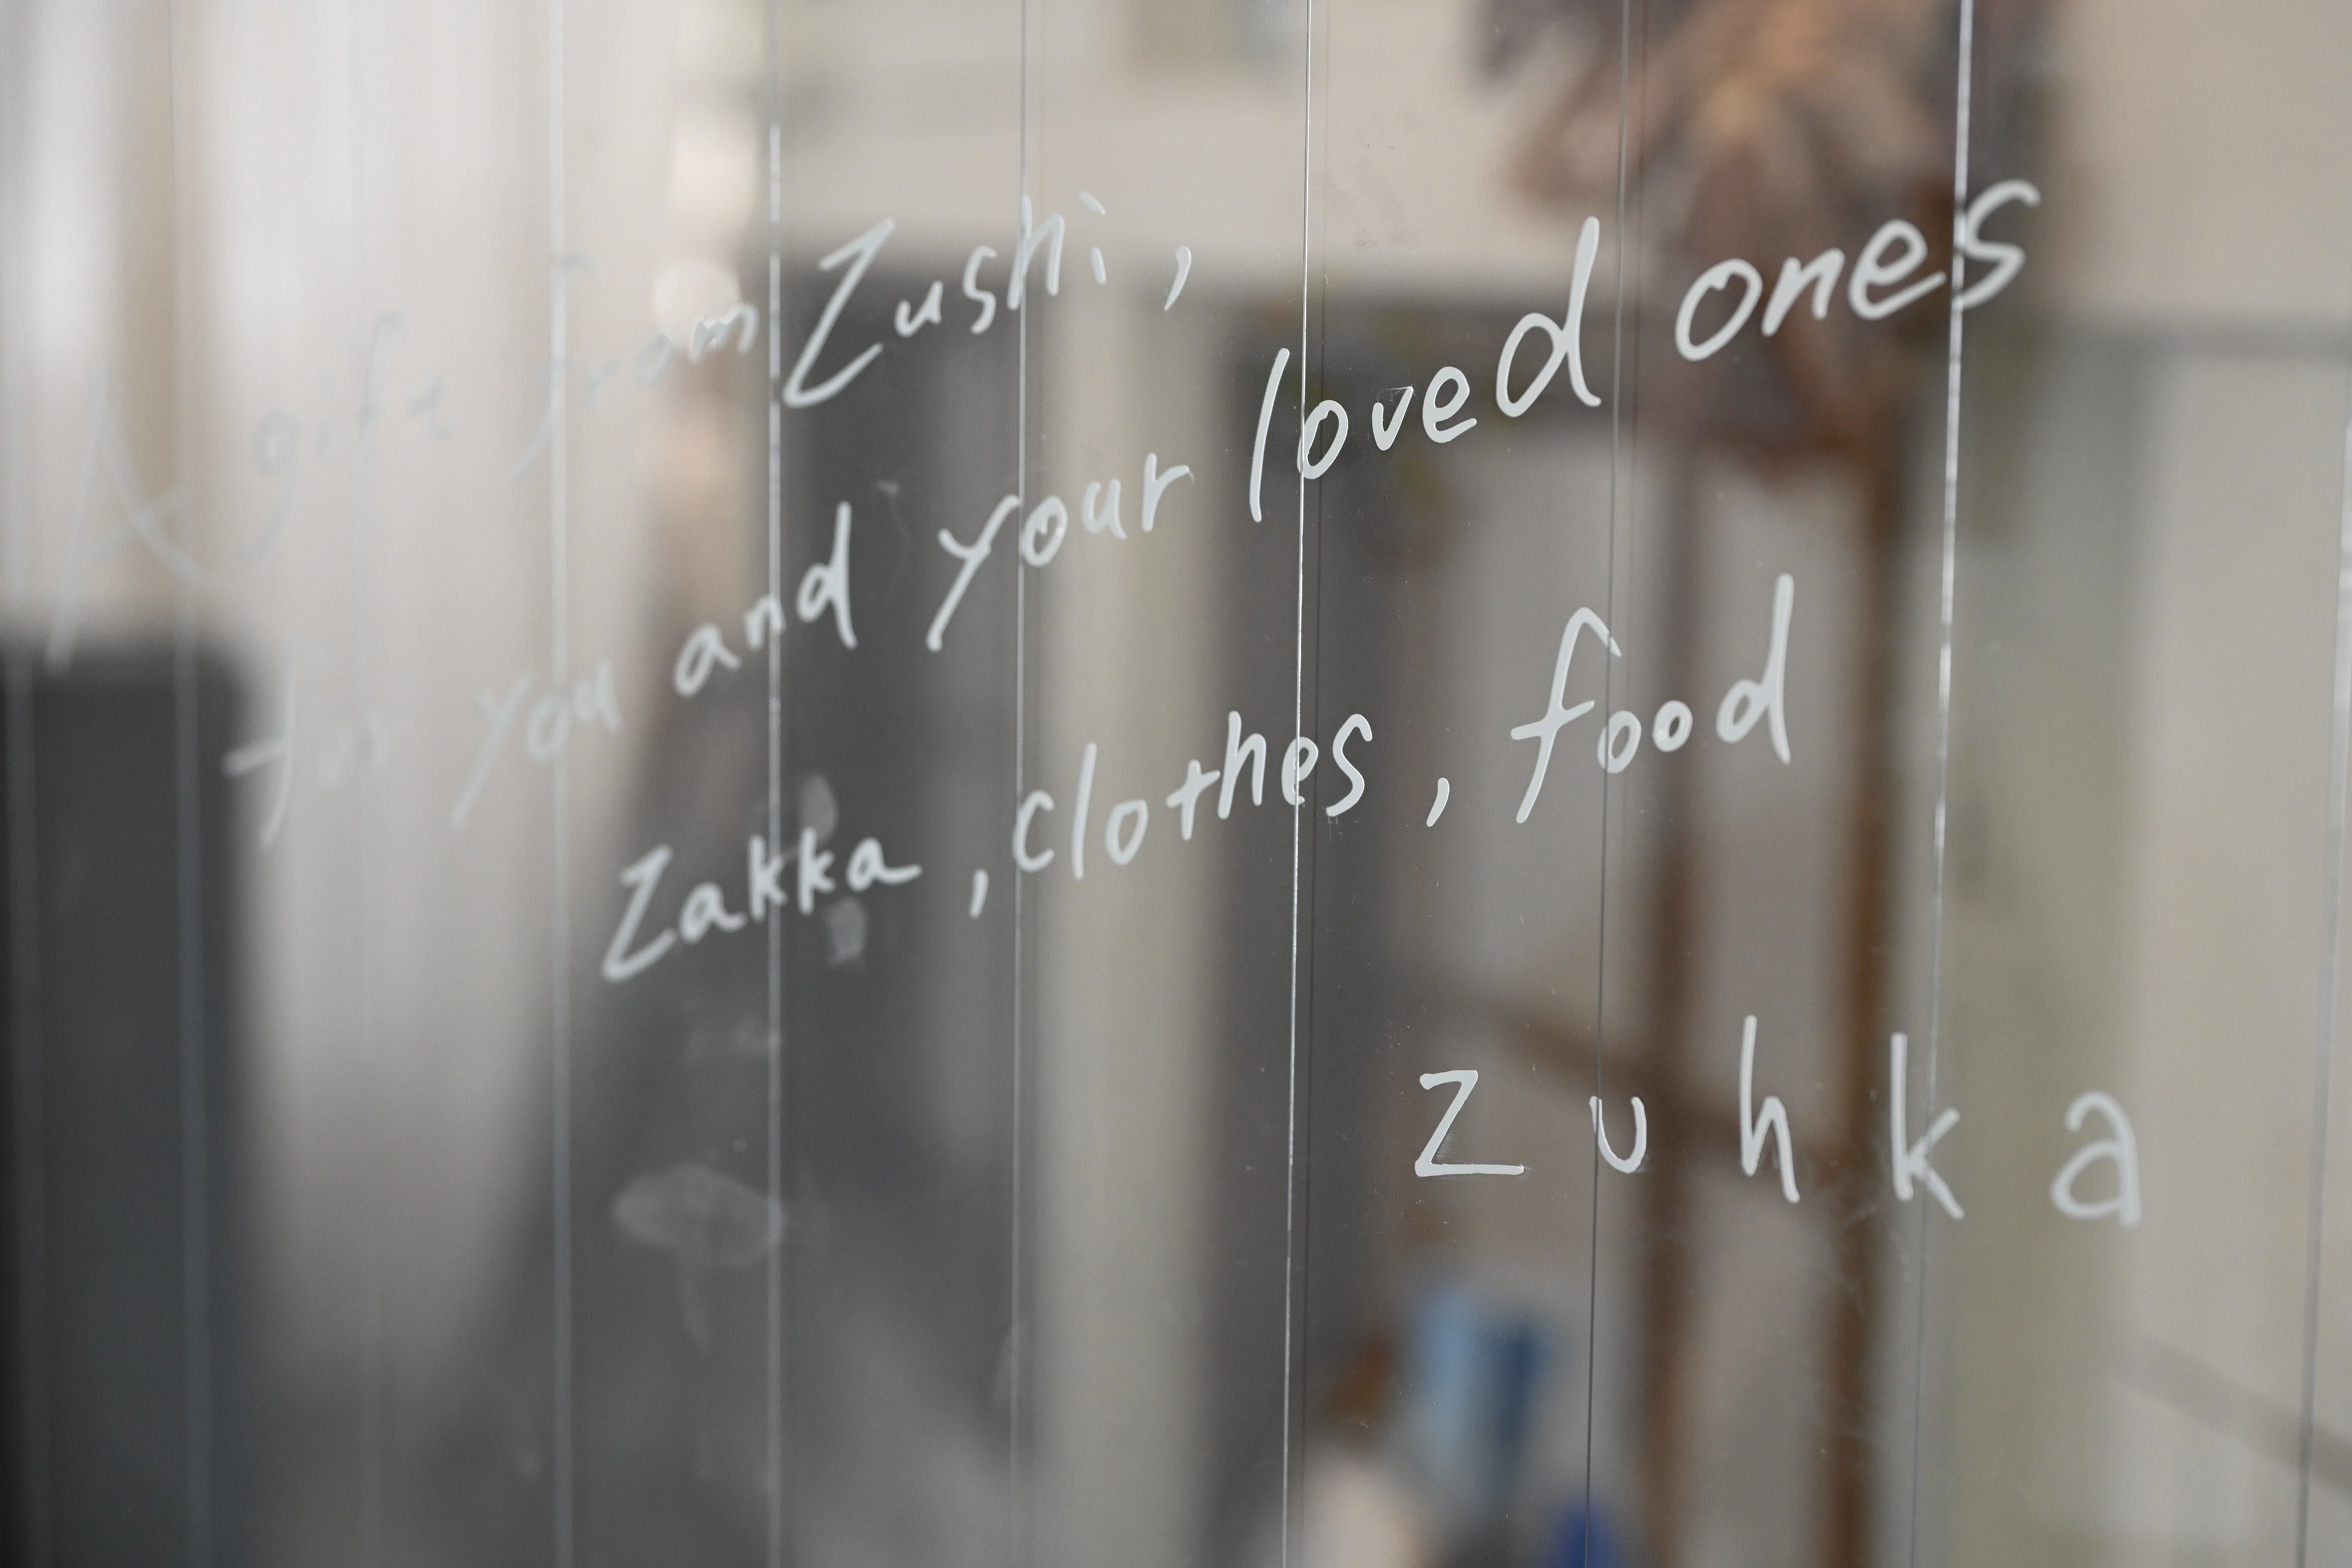 A gift from Zushi,
for you and your loved ones
Zakka, clothes, food
zuhka